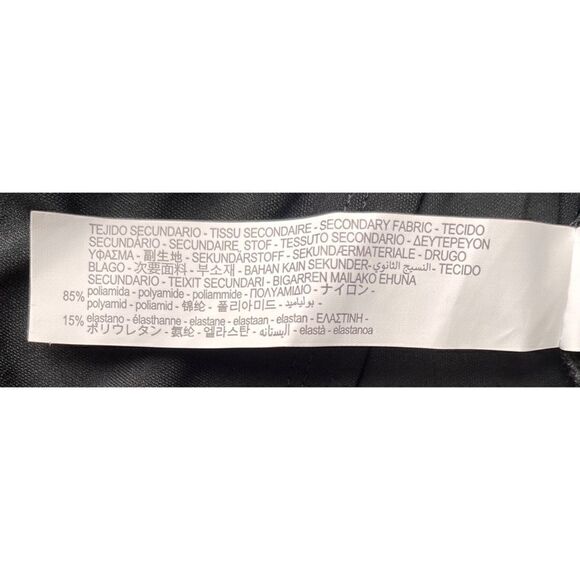 TEJIDO SECUNDARIO - TISSU SECONDAIRE - SECONDARY FABRIC - TECIDO
SECUNDÁRIO - SECUNDAIRE STOF - TESSUTO SECONDARIO - ΔEYTEPEYON
ΥΦΑΣΜΑ - 副生地 - SEKUNDÄRSTOFF - SEKUNDÆRMATERIALE - DRUGO
BLAGO - 次要面料 - 부소재 - BAHAN KAIN SEKUNDER - النسيج الثانوي - TECIDO
SECUNDARIO - TEIXIT SECUNDARI - BIGARREN MAILAKO EHUNA
85% poliamida - polyamide - poliammide - ΠΟΛΥΑΜΙΔΙΟ - ナイロン -
polyamid - poliamid - 锦纶 - 폴리아미드 - بولياميد
15% elastano - élasthanne - elastane - elastaan - elastan - ΕΛΑΣΤΙΝΗ -
ポリウレタン - 氨纶 - 엘라스탄 - الیستانه - elastà - elastanoa